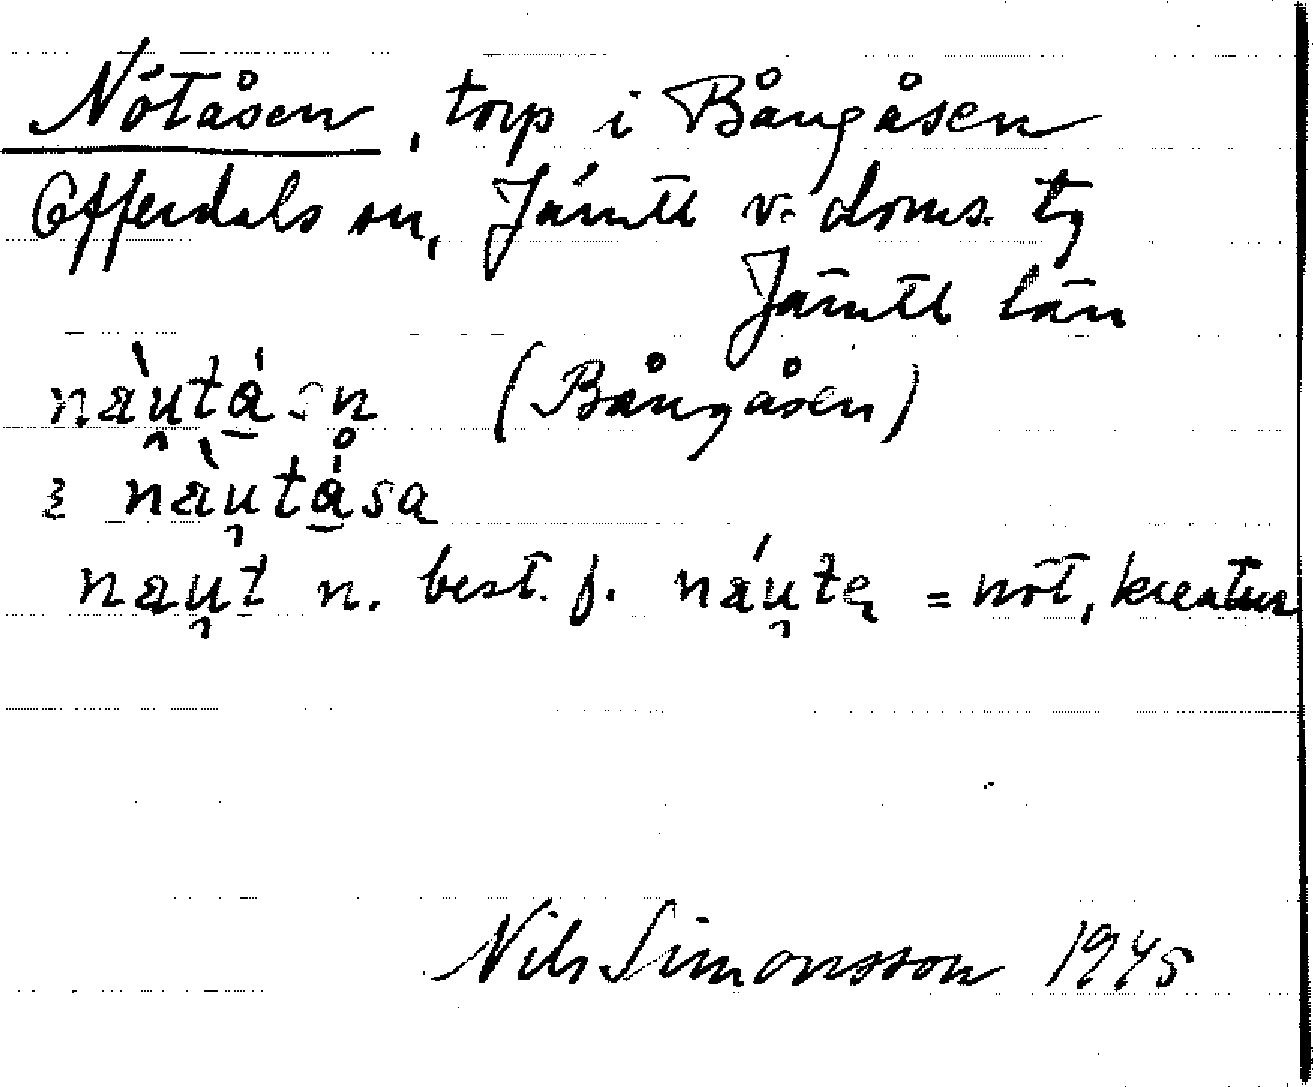 Nötåsen, torp i Bångåsen
Offerdals sn, Jämtl v. doms. tg
Jämtl län
nàu̯tǻsn (Bångåsen)
ꝫ nàu̯tǻsa
nau̯t n. best. f. náu̯tę = nöt, kreatur
Nils Simonsson 1945